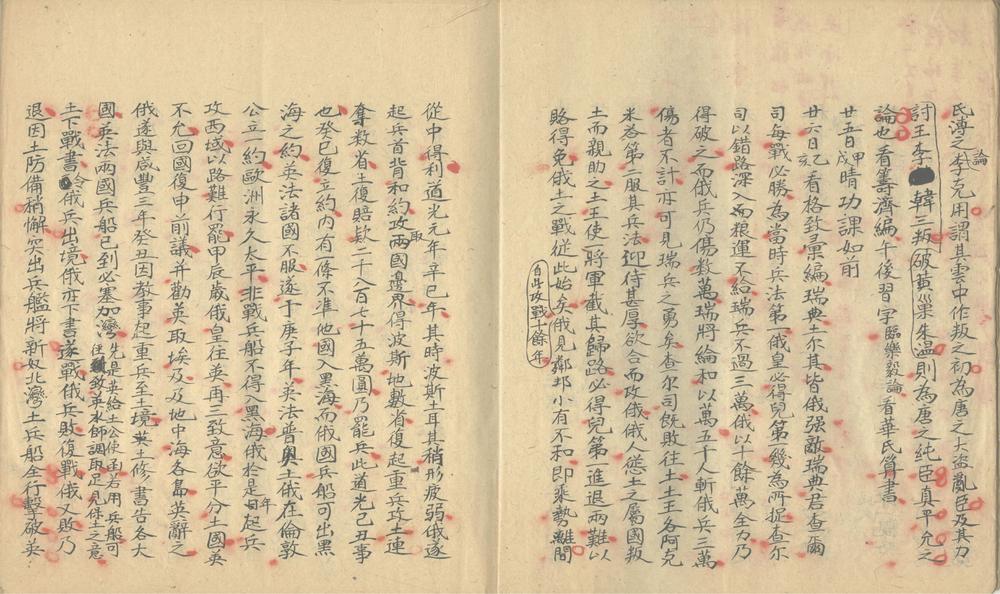 氏溥之論李克用謂其雲中作叛之初為唐之大盜亂臣及其力
討王李韓三叛破黃巢朱溫則為唐之純臣真平允之
論也看籌濟編午後習字臨樂毅論看華氏算書
廿五日甲戌晴功課如前
廿六日乙亥看格致彙編瑞典土尔其皆俄強敵瑞典君查爾
司每戰必勝為當時兵法第一俄皇必得兒第一幾為所捉查尔
司以錯路深入而粮運不給瑞兵不過三萬俄以十餘萬全力乃
得破之而俄兵仍傷数萬瑞將倫和以萬五千人斬俄兵三萬
傷者不計亦可見瑞兵之勇矣查尔司既敗往土土王各阿克
米荅第二服其兵法迎待甚厚欲合而攻俄俄人慫土之屬國叛
土而親助之土王使一將軍截其歸路必得兒第一進退兩難以
賂得免俄土之戰從此始矣俄見鄰邦小有不和即乘勢離間
自此攻戰十餘年
從中得利道光元年辛巳年其時波斯土耳其稍形疲弱俄遂
起兵首背和約攻取兩國邊界得波斯地數省復起重兵攻土連
奪数省土復賠款二千八百七十五萬圓乃罷兵此道光己丑事
也癸巳復立約內有一條不准他國入黑海而俄國兵船可出黑
海之約英法諸國不服遂于庚子年英法普奧土俄在倫敦
公立一約歐洲永久太平非戰兵船不得入黑海俄於是年起兵
攻西域以路難行罷甲辰歲俄皇往英再三致意欲平分土國英
不允回國復申前議并勸英取埃及及地中海各島英辭之
俄遂與咸豐三年癸丑因教事起重兵至土境土修書告各大
國英法兩國兵船已到必塞加灣先是英給土公使函若用兵船可
徑致英水師調用足見保土之意
土下戰書令俄兵出境俄亦下書遂戰俄兵敗復戰俄又敗乃
退因土防備稍懈突出兵艦將新奴北灣土兵船全行擊破英